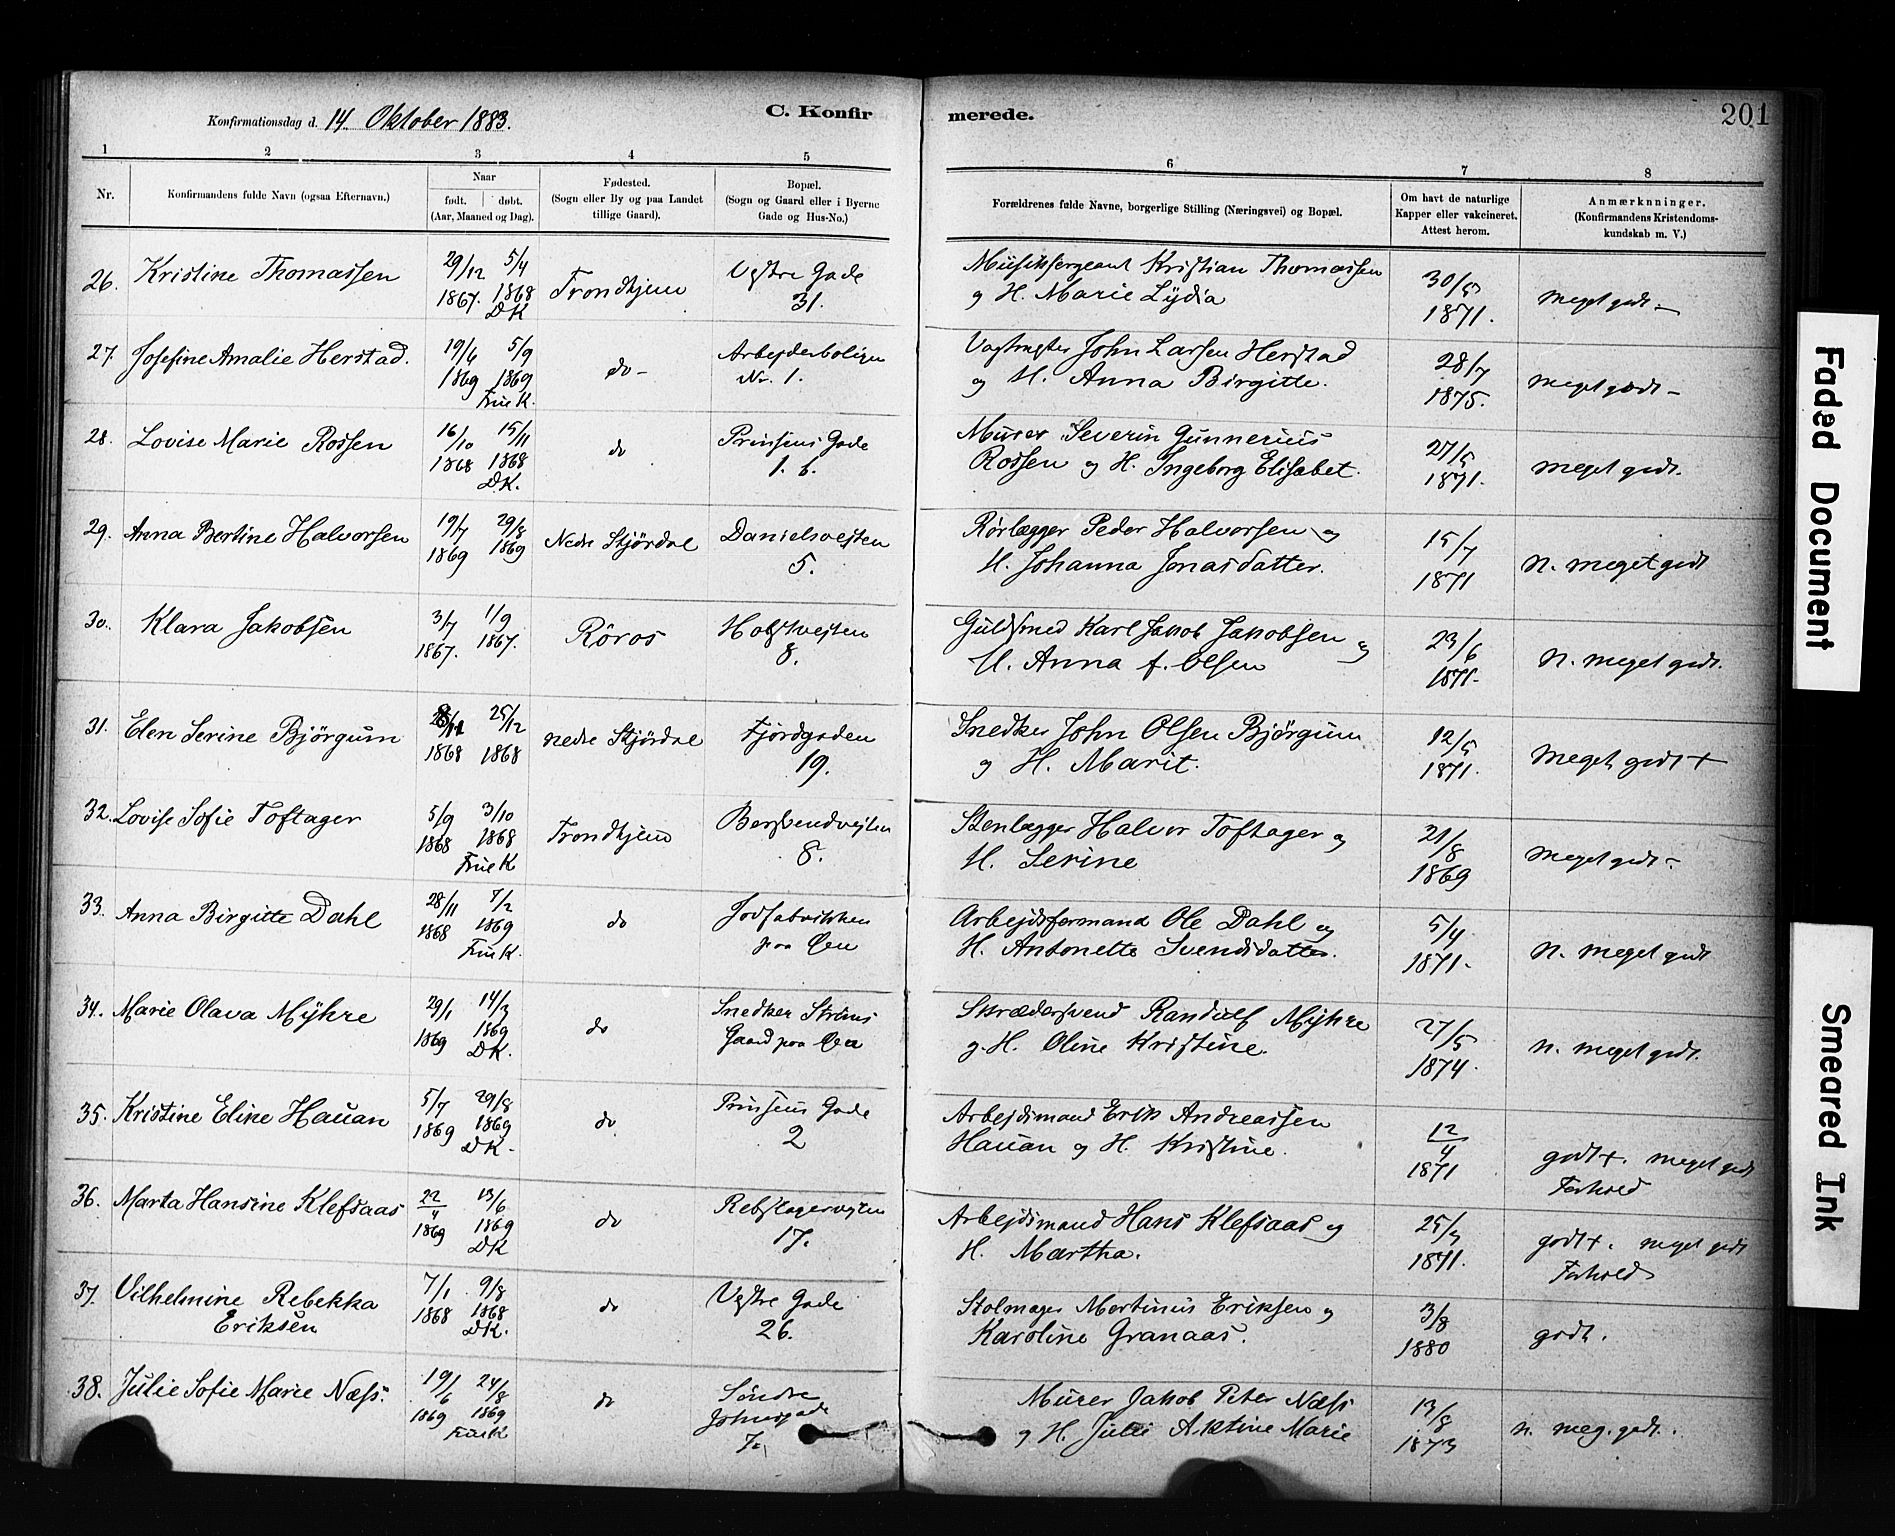 Konfirmationsdag d. 14. Oktober 1883.
C. Konfirmerede.
201
1 2 3 4 5 6 7 8
Nr.
Konfirmandens fulde Navn (ogsaa Efternavn.)
Naar
født. døbt.
(Aar, Maaned og Dag).
Fødested.
(Sogn eller By og paa Landet
tillige Gaard).
Bopæl.
(Sogn og Gaard eller i Byerne
Gade og Hus-No.)
Forældrenes fulde Navne, borgerlige Stilling (Næringsvei) og Bopæl.
Om havt de naturlige
Kapper eller vakcineret.
Attest herom.
Anmærknninger.
(Konfirmandens Kristendoms-
kundskab m. V.)
26. Kristine Thomassen 29/12 1867. 5/4 1868 DK Trondhjem Vestre Gade 31.
Musiksergeant Kristian Thomassen
og H. Marie Lydia 30/5 1871. meget godt –
27. Josefine Amalie Herstad. 19/6 1869 5/9 1869 Frue K. do – Arbejderboligen No. 1.
John Larsen Herstad
og H. Anna Birgitte. 28/7 1875. meget godt –
28. Lovise Marie Rossen 16/10 1868 15/11 1868 DK. do Prinsens Gade 1. b.
Murer Severin Gunnerius
Rossen og H. Ingeborg Elisabet. 27/5 1871. meget godt.
29. Anna Bertine Halvorsen 19/7 1869 29/8 1869 Nedre Stjørdal Danielsvejten 5.
Rørlægger Peder Halvorsen og
H. Johanna Jonasdatter. 15/7 1871 n. meget godt
30. Klara Jakobsen 3/7 1867. 1/9 1867. Röros Holstvejten 8.
Guldsmed Karl Jakob Jakobsen og
H. Anna f. Olsen 23/6 1871. n. meget godt.
31. Elen Serine Bjørgum 1868 25/12 1868 nedre Stjørdal Fjordgaden 19.
Snedker John Olsen Bjørgum
og H. Marit. 12/5 1871. meget godt +
32. Lovise Sofie Toftager 5/9 1868 3/10 1868 Frue K Trondhjem Bersvendvejten 8.
Stenlægger Halvor Toftager og
H. Serine 21/8 1869 meget godt –
33. Anna Birgitte Dahl 28/11 1868 7/2 1869 Frue K. do Jodfabrikken paa Øen
Arbejdsformand Ole Dahl og
H. Antonette Svendsdatter. 5/4 1871. n. meget godt
34. Marie Olava Myhre 29/1 1869 14/3 1869 DK. do Snedker Strøms Gaard paa Øen
Skrædersvend Randulf Myhre
og H. Oline Kristine. 27/5 1874. n. meget godt.
35. Kristine Eline Hauan 5/7 1869 29/8 1869 DK. do Prinsens Gade 2
Arbejdsmand Erik Andreassen
Hauan og H. Kristine. 12/4 1871 godt +. meget godt
Forhold
36. Marta Hansine Klefsaas 22/4 1869 13/6 1869 DK do Rebslagervejten 17.
Arbejdsmand Hans Klefsaas og
H. Martha. 25/3 1871. godt +. meget godt
Forhold
37. Vilhelmine Rebekka
Eriksen 7/1 1868 9/8 1868 DK. do Vestre Gade 26.
Stolmager Martinus Eriksen og
Karoline Granaas. 3/8 1880 godt.
38. Julie Sofie Marie Næss. 19/6 1869 24/8 1869 Frue K do Søndre 7.
Murer Jakob Peter Næss
og H. Julie Marie 13/8 1873 n. meg. godt.
Faded Document
Smeared Ink